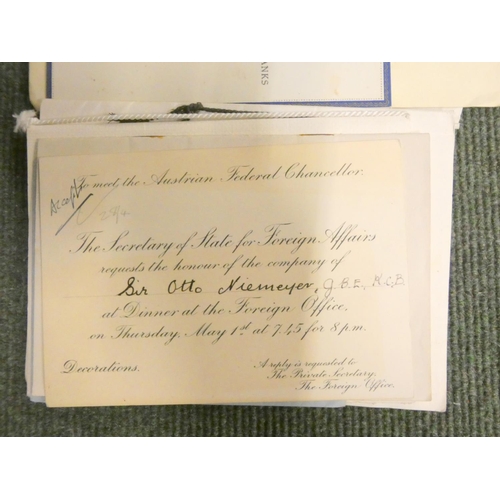 ANKS
To meet the Austrian Federal Chancellor.
Accept
The Secretary of State for Foreign Affairs
requests the honour of the company of
Sir Otto Niemeyer, G.B.E., K.C.B.
at Dinner at the Foreign Office,
on Thursday, May 1st at 7.45 for 8 p.m.
Decorations.
A reply is requested to
The Private Secretary,
The Foreign Office.